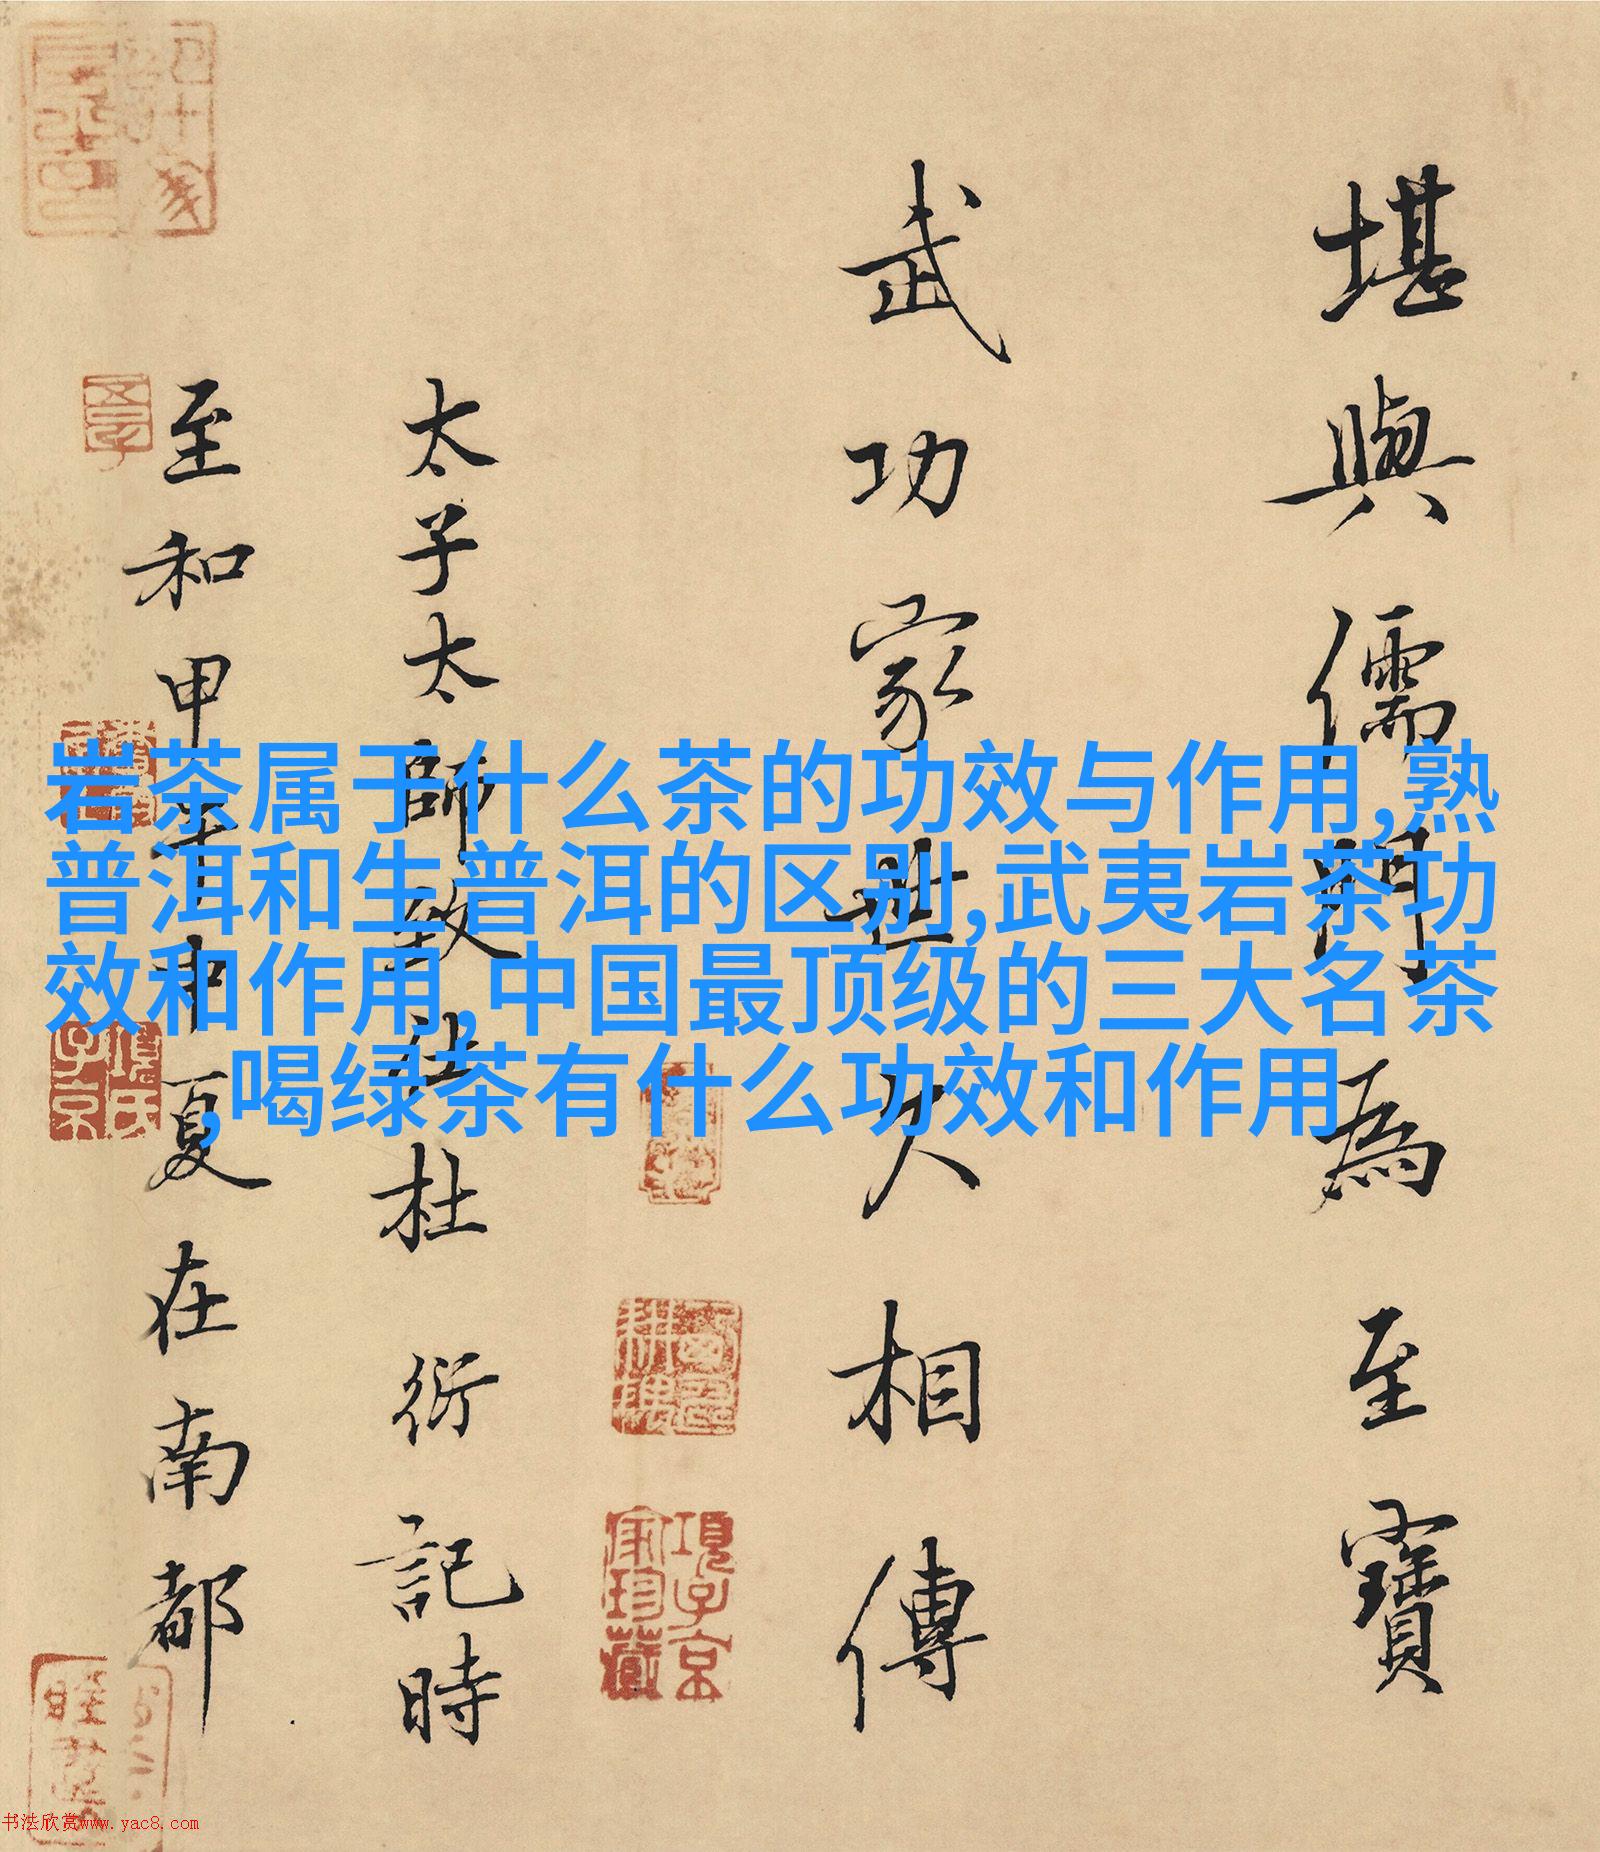 堪輿儒門為至寶
武功家世久相傳
太子太師致仕杜衍記時
至和甲午中夏在南都
岩茶属于什么茶的功效与作用,熟
普洱和生普洱的区别,武夷岩茶功
效和作用,中国最顶级的三大名茶
,喝绿茶有什么功效和作用
項子京
家珍藏
項氏
子京
书法欣赏www.yac8.com